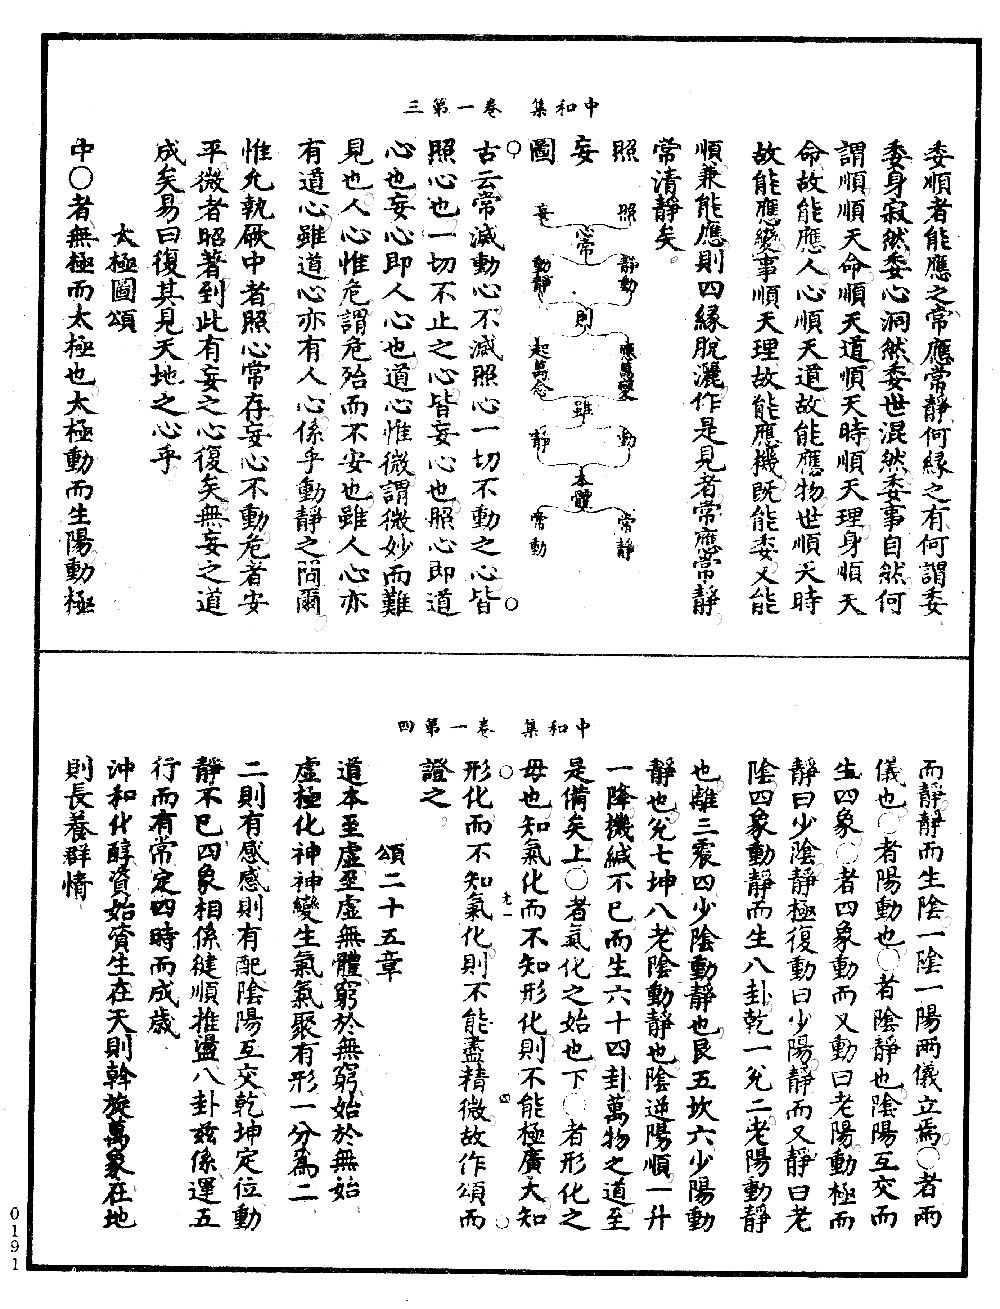 三第一卷 集和中
委順者能應之常應常靜何緣之有何謂委
委身寂然委心洞然委世混然委事自然何
謂順順天命順天道順天時順天理身順天
命故能應人心順天道故能應物世順天時
故能應變事順天理故能應機既能委又能
順兼能應則四緣脫灑作是見者常應常靜
常清靜矣
照妄圖
照 妄
心常
靜動 動靜
則
應萬變 起萬念
雖
動 靜
本體
常靜 常動
古云常滅動心不滅照心一切不動之心皆
照心也一切不止之心皆妄心也照心即道
心也妄心即人心也道心惟微謂微妙而難
見也人心惟危謂危殆而不安也雖人心亦
有道心雖道心亦有人心係乎動靜之間爾
惟允執厥中者照心常存妄心不動危者安
平微者昭著到此有妄之心復矣無妄之道
成矣易曰復其見天地之心乎
太極圖頌
中○者無極而太極也太極動而生陽動極
四第一卷 集和中
而靜靜而生陰一陰一陽兩儀立焉○者兩
儀也○者陽動也○者陰靜也陰陽互交而
生四象○者四象動而又動曰老陽動極而
靜曰少陰靜極復動曰少陽靜而又靜曰老
陰四象動靜而生八卦乾一兌二老陽動靜
也離三震四少陰動靜也艮五坎六少陽動
靜也兌七坤八老陰動靜也陰逆陽順一升
一降機緘不已而生六十四卦萬物之道至
是備矣上○者氣化之始也下○者形化之
母也知氣化而不知形化則不能極廣大知
形化而不知氣化則不能盡精微故作頌而
證之
頌二十五章
道本至虛至虛無體窮於無窮始於無始
虛極化神神變生氣氣聚有形一分為二
二則有感感則有配陰陽互交乾坤定位動
靜不已四象相係健順推盪八卦茲係運五
行而有常定四時而成歲
沖和化醇資始資生在天則斡旋萬象在地
則長養群情
0191